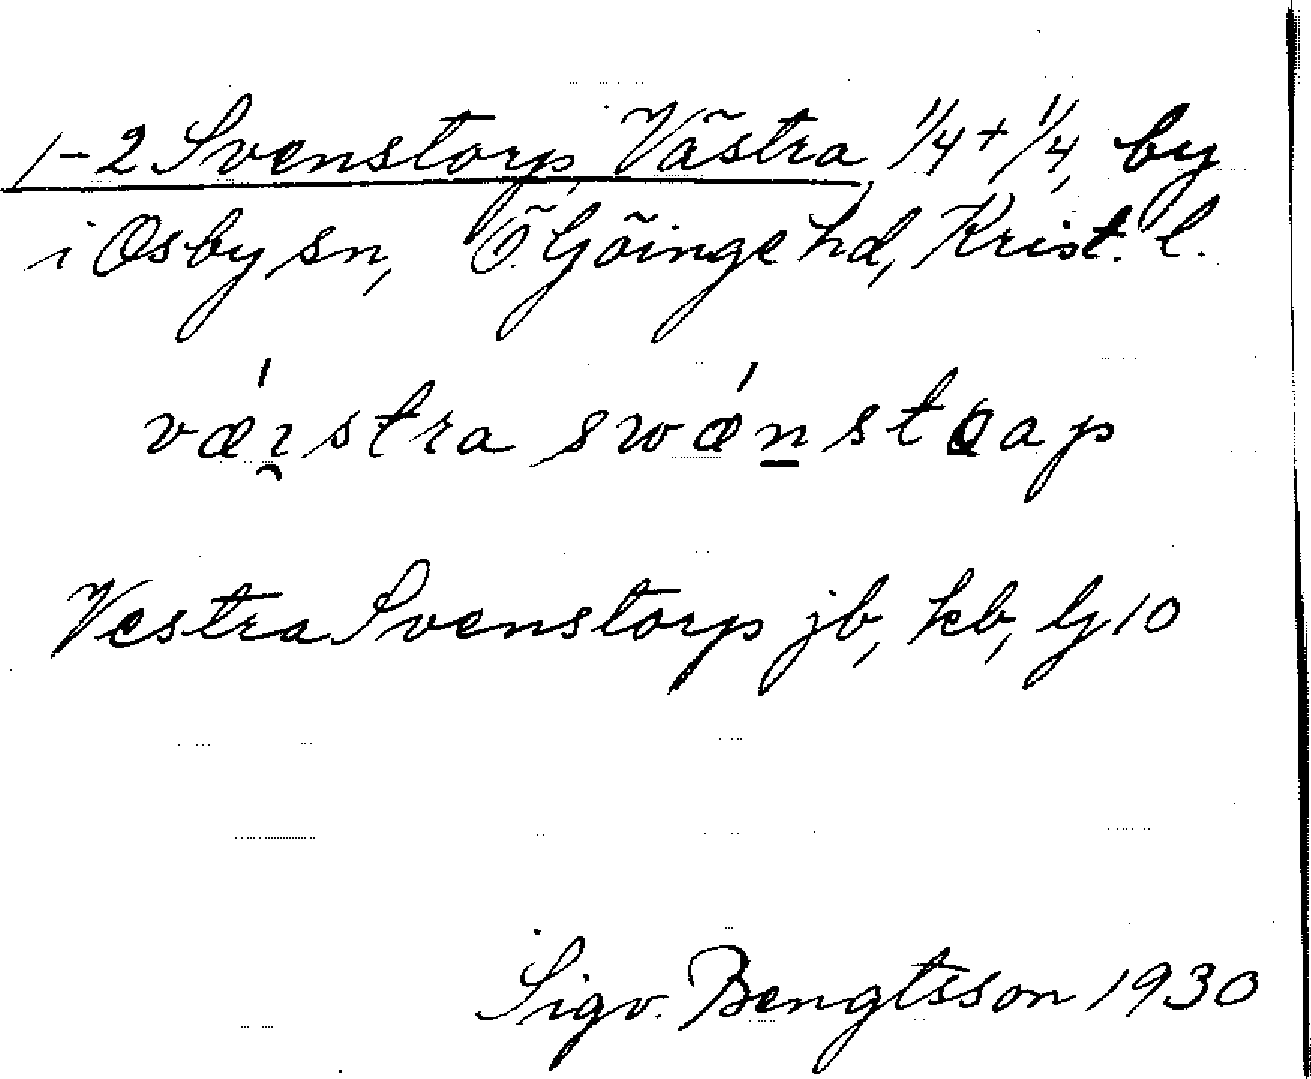 1-2 Svenstorp, Västra 1/4 + 1/4, by
i Osby sn, Ö. Göinge hd, Krist. l.
vǽı̯stra swǽn̲stap
Vestra Svenstorp jb, kb, G 10
Sigv. Bengtsson 1930